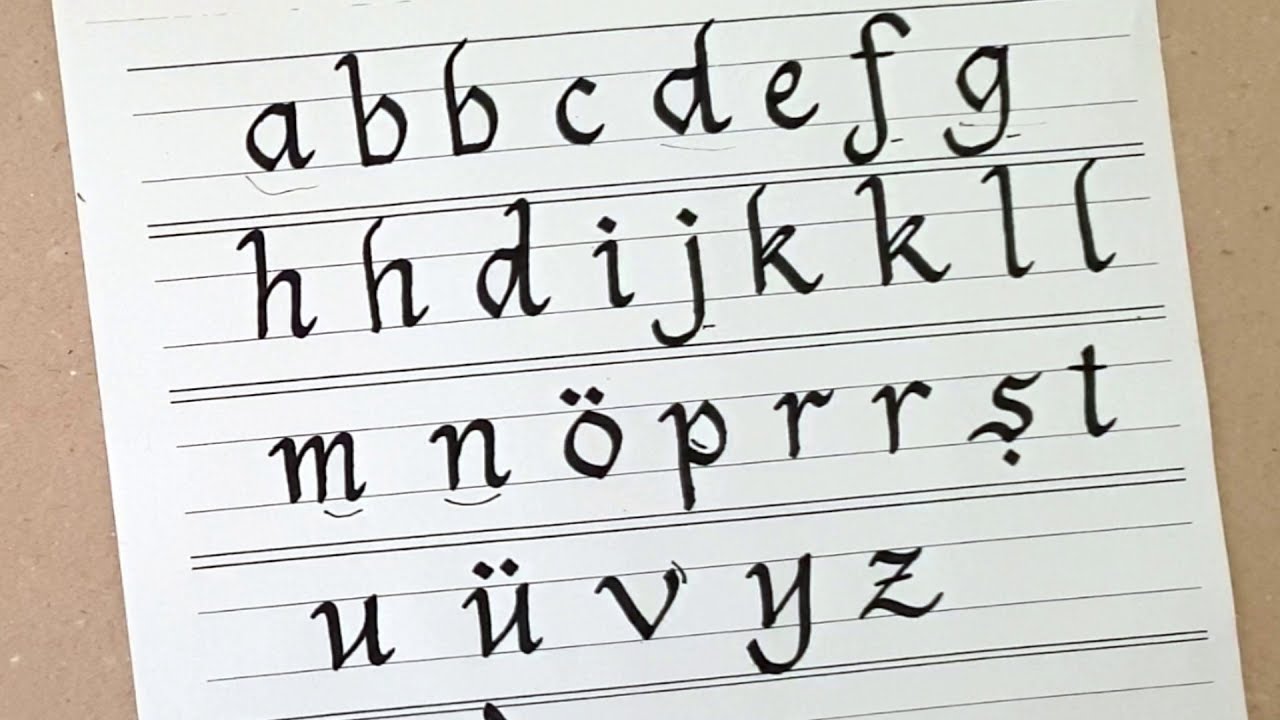 a b b c d e f g
h h d i j k k l l
m n ö p r r ş t
u ü v y z